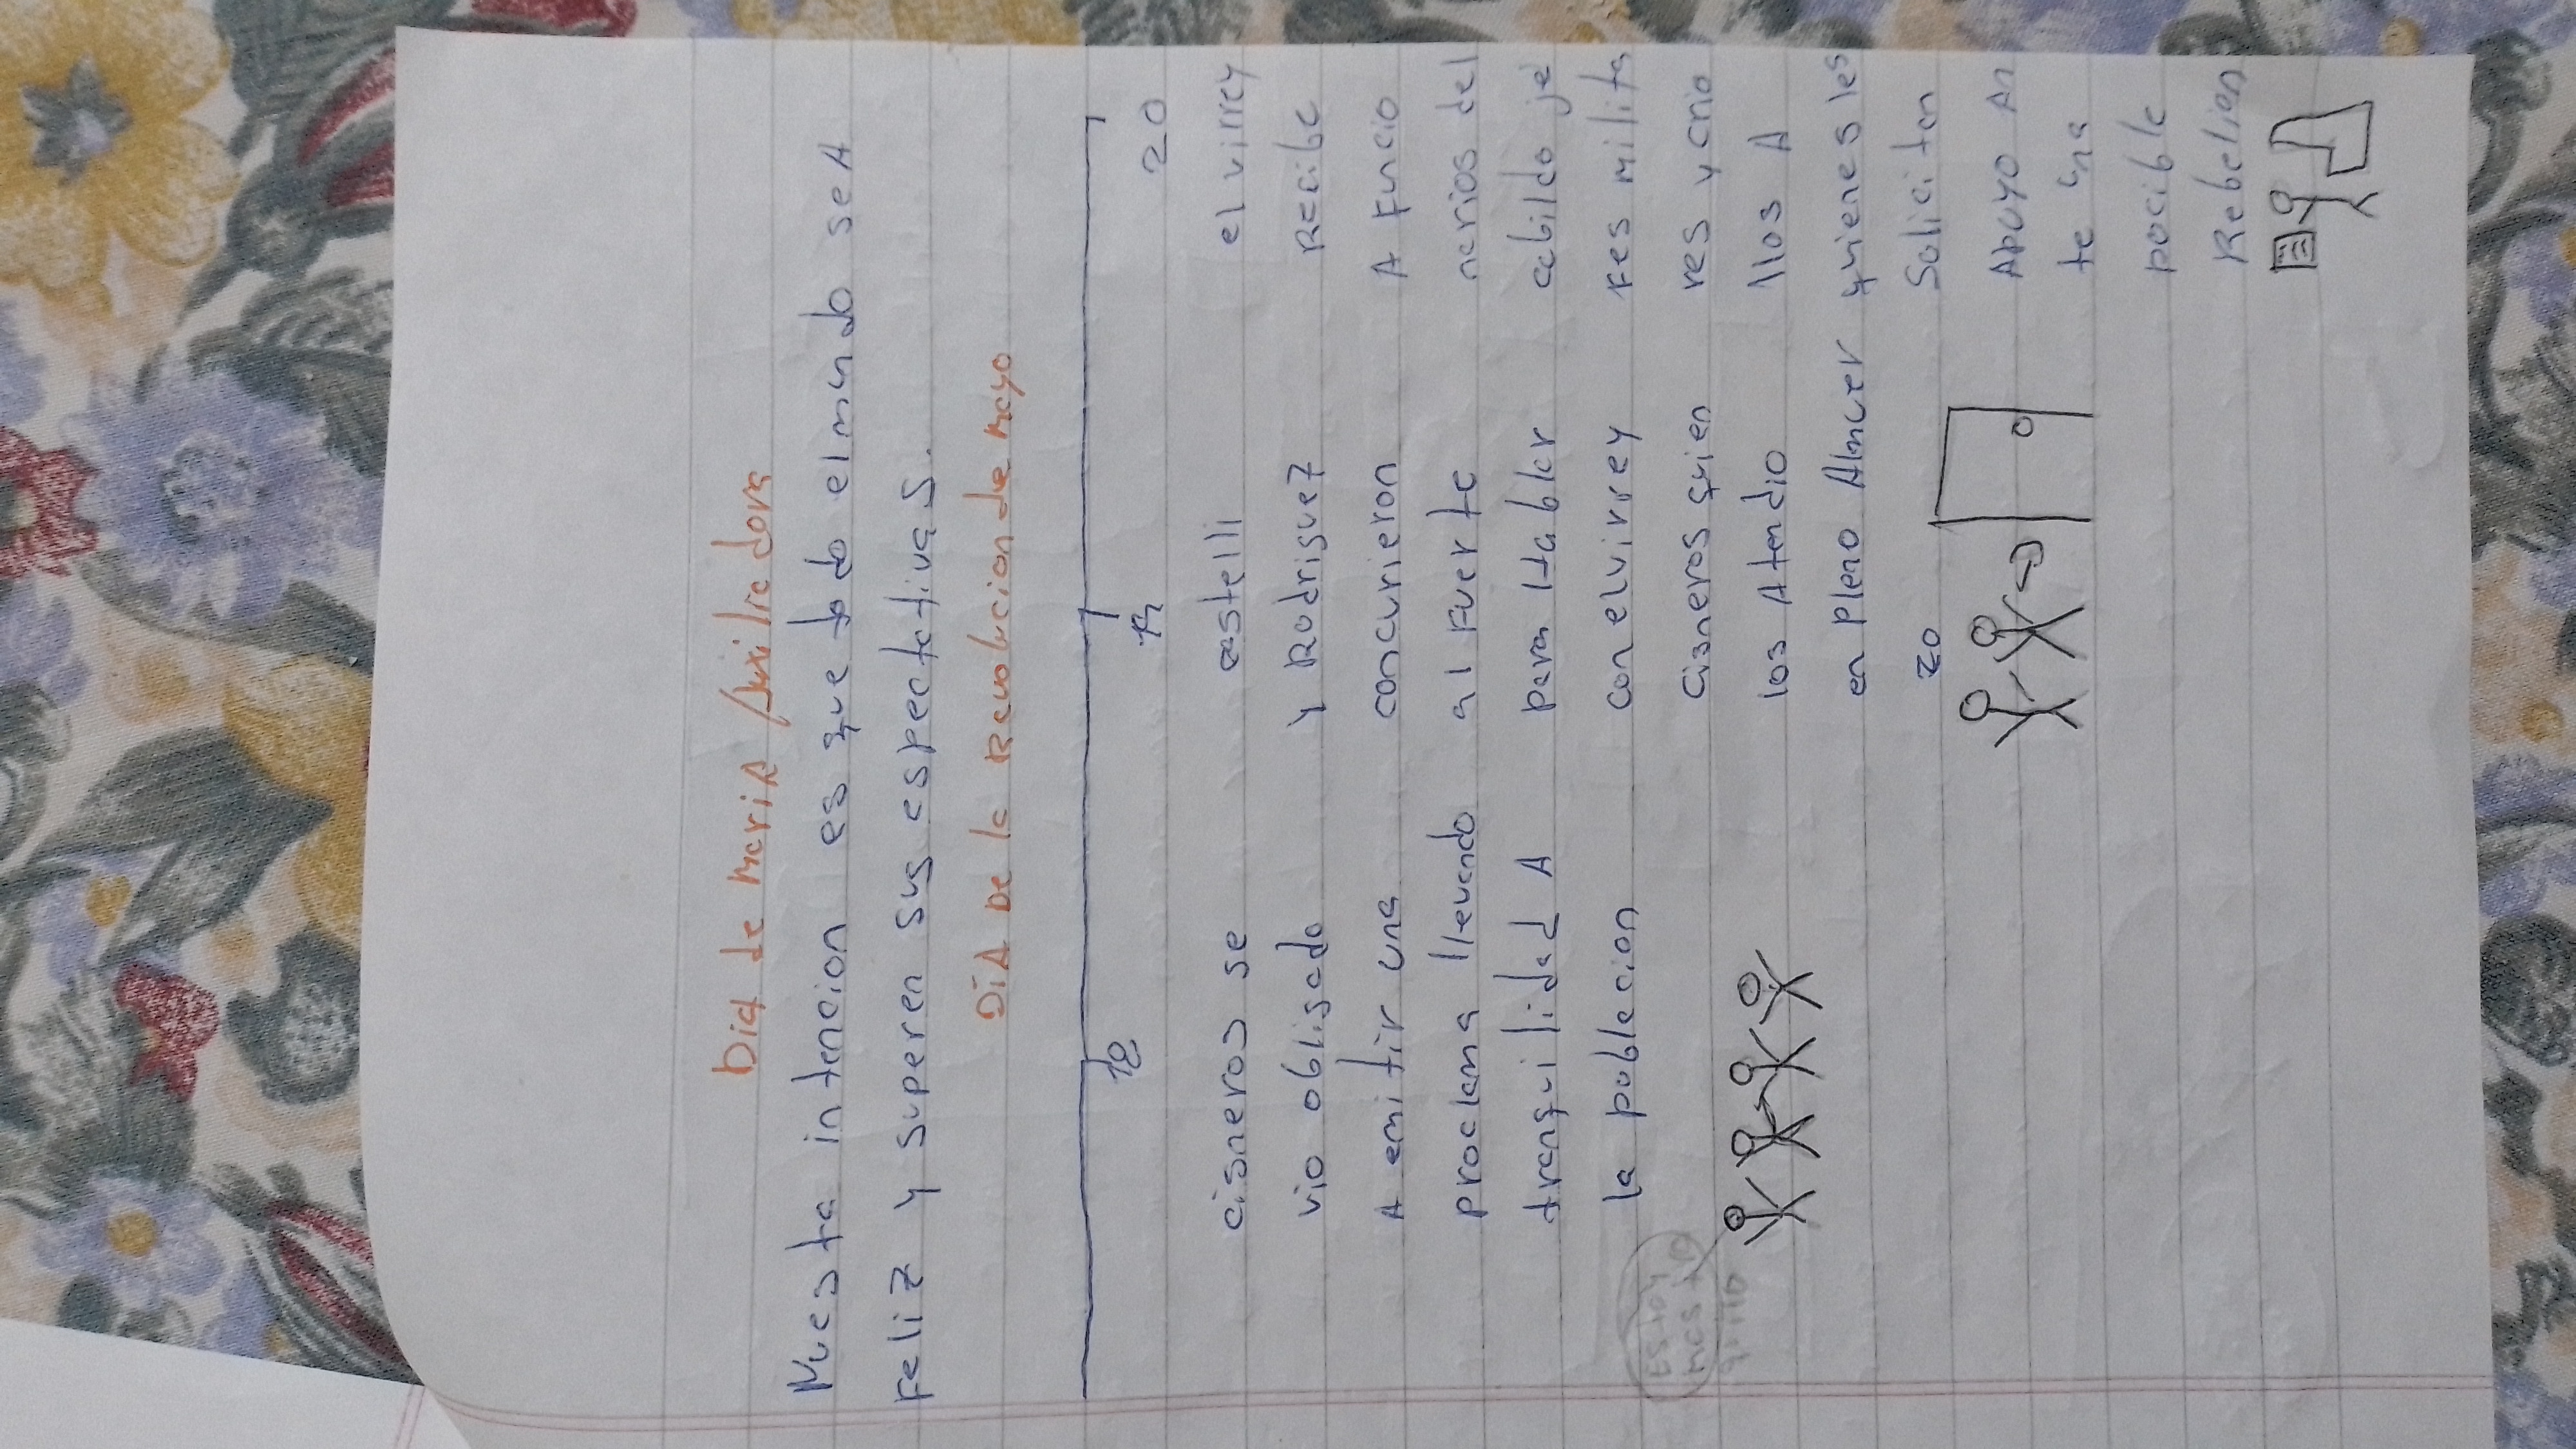 Dia de MariA Auxiliadora
Nuestra intencion es que todo el mundo seA
Feliz y superen sus espectativas.
DiA De la Revolucion de Mayo
18
cisneros se
vio obligado
A emitir una
proclama llevando
tranquilidad A
la poblacion
Estoy
mas tr
castelli
y Rodriguez
concurieron
al Fuerte
para HAblar
con el virrey
Cisneros quien
los Atendio
en Pleno Almuer
zo
20
el virrey
Recibe
A Funcio
narios del
cabildo je
fes milita
res y crio
llos A
quienes les
Solicitan
Apoyo An
te una
pocible
Rebelion